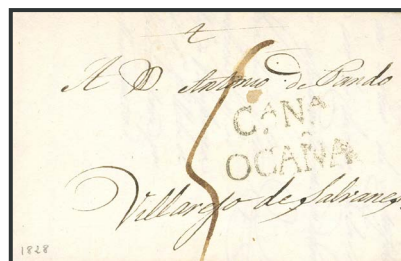 A D. Antonio de Pando
CANA
OCAÑA
Villarejo de Salvanes
1828